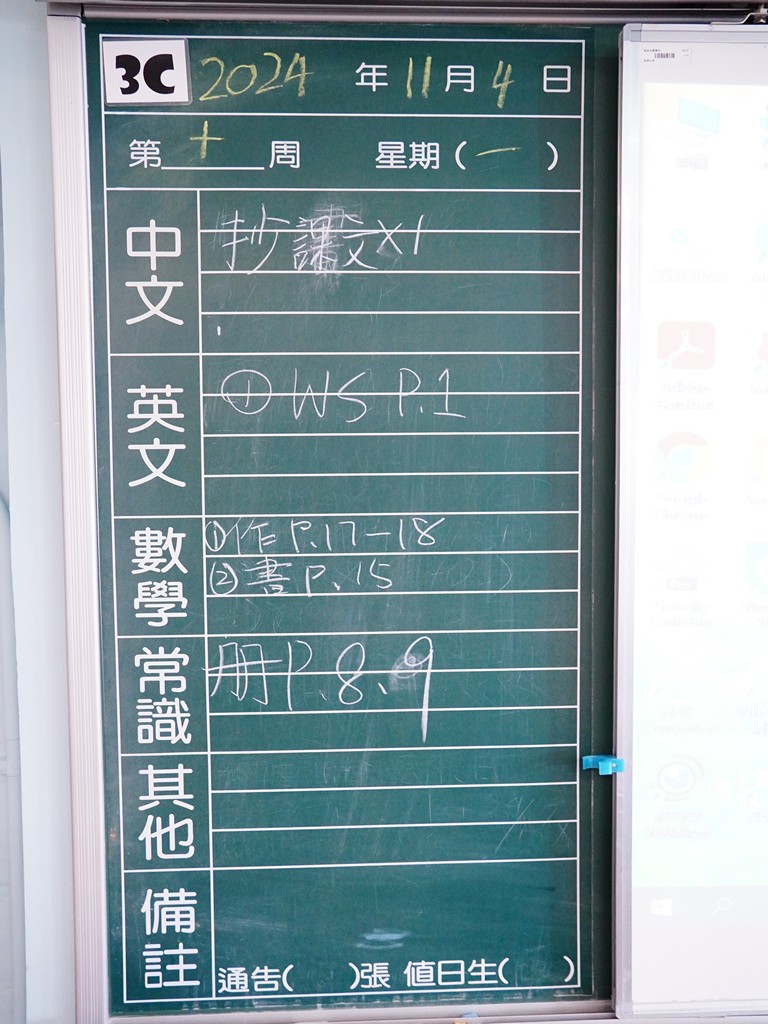 3C 2024 年 11 月 4 日
第 十 周 星期 ( 一 )
中文 抄課文x1
英文 ① WS P.1
數學 ①作 P.17-18
②書 P.15
常識 册 P.8、9
其他
備註
通告( )張 值日生( )